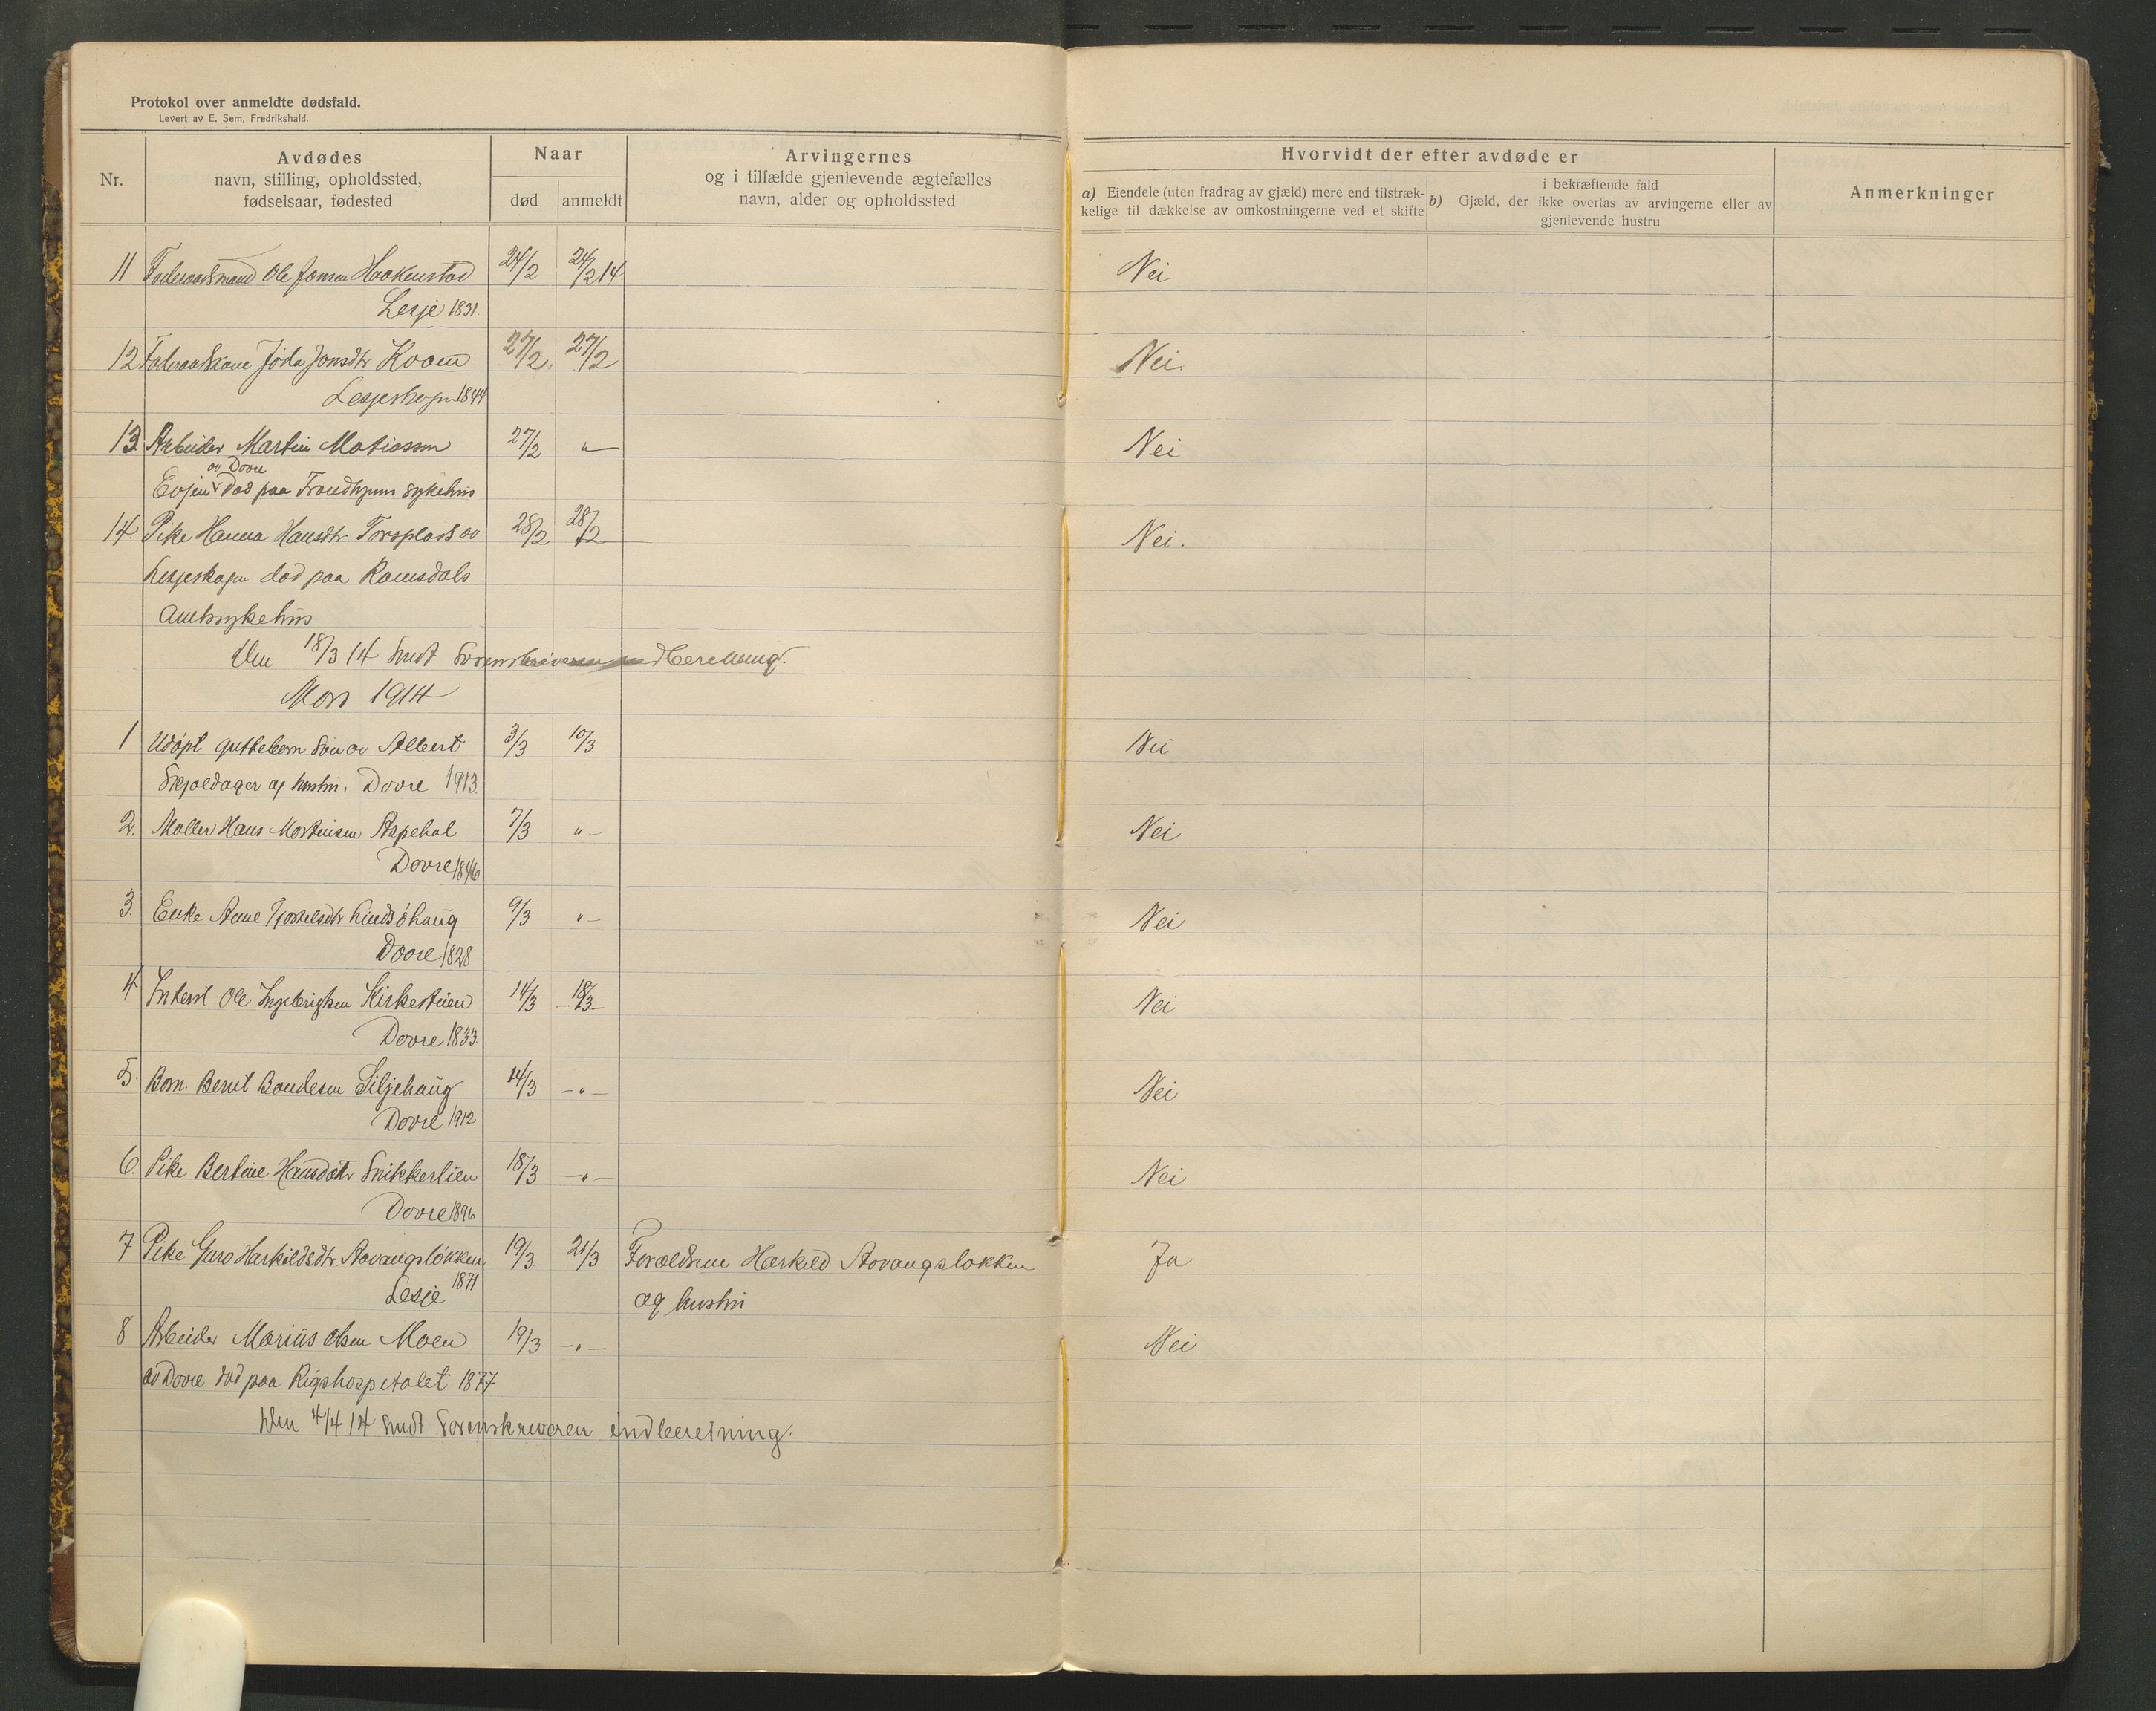 Protokol over anmeldte dødsfald.
Levert av E. Sem, Fredrikshald.
Nr.
Avdødes
navn, stilling, opholdssted,
fødselsaar, fødested
Naar
død anmeldt
Arvingernes
og i tilfælde gjenlevende ægtefælles
navn, alder og opholdssted
Hvorvidt der efter avdøde er
a) Eiendele (uten fradrag av gjæld) mere end tilstræk-
kelige til dækkelse av omkostningerne ved et skifte
i bekræftende fald
b) Gjæld, der ikke overtas av arvingerne eller av
gjenlevende hustru
Anmerkninger
11 Foderaadsmand Ole Jonsen Haakenstad 24/2 24/2 14 Nei
Lesje 1831.
12 Foderaadskone Jøda Jonsdtr Kvam 27/2 27/2 Nei.
Lesjeskogn 1844
13. Arbeider Martin Matiassen 27/2 " Nei
av Dovre
Evjen død paa Trondhjems sykehus
14. Pike Hanna Hansdtr Torsplads av 28/2 28/2 Nei.
Lesjeskogn død paa Romsdals
Amtssykehus
Den 18/3 14 sendt Sorenskriveren indberetning.
Mars 1914
1 Udøpt guttebarn søn av Albert 3/3 10/3 Nei
Skjoldager og hustru. Dovre 1913.
2. Møller Hans Mortensen Aspehol 7/3 " Nei
Dovre 1846
3. Enke Anne Lindsøhaug 9/3 " Nei
Dovre 1828
4. Inderst Ole Ingebrigtsen Kirkestuen 14/3 18/3 Nei
Dovre 1833.
5. Barn. Bernt Bondesen Siljehaug 14/3 " Nei
Dovre 1912
6. Pike Bertine Hansdatr Snikkerlien 18/3 " Nei
Dovre 1896
7 Pike Guro Harkildsdtr. Aavangsløkken 19/3. 21/3 Forældrene Harkild Aavangsløkken Ja
Lesje 1871 og hustru
8 Arbeider Marius Olsen Moen 19/3 " Nei
av Dovre død paa Rigshospitalet 1877
Den 4/4 14 sendt Sorenskriveren indberetning.